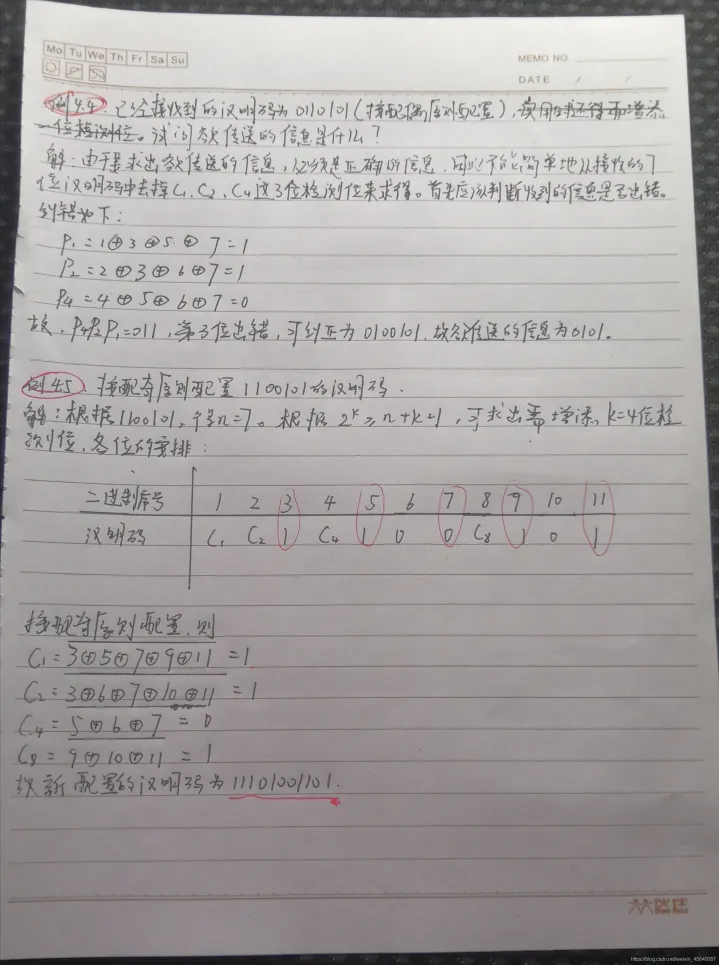 Mo Tu We Th Fr Sa Su
MEMO NO.
DATE / /
例4.4. 已经接收到的汉明码为0110101(按配偶原则配置),
试问欲传送的信息是什么?
解:由于要求出欲传送的信息,必须是正确的信息,因此不能简单地从接收的7
位汉明码中去掉C₁、C₂、C₄这3位检测位来求得。首先应该判断收到的信息是否出错。
纠错如下:
P₁=1⊕3⊕5⊕7=1
P₂=2⊕3⊕6⊕7=1
P₄=4⊕5⊕6⊕7=0
故,P₄P₂P₁=011,第3位出错,可纠正为0100101,故欲传送的信息为0101.
例4.5. 按配奇原则配置1100101的汉明码.
解:根据1100101,得n=7。根据2ᵏ≥n+k+1,可求出需增添k=4位检
测位,各位的安排:
二进制序号 1 2 3 4 5 6 7 8 9 10 11
汉明码 C₁ C₂ 1 C₄ 1 0 0 C₈ 1 0 1
按配奇原则配置,则
C₁=3⊕5⊕7⊕9⊕11=1
C₂=3⊕6⊕7⊕10⊕11=1
C₄=5⊕6⊕7=0
C₈=9⊕10⊕11=1
故新配置的汉明码为11101001101.
https://blog.csdn.net/weixin_45640087